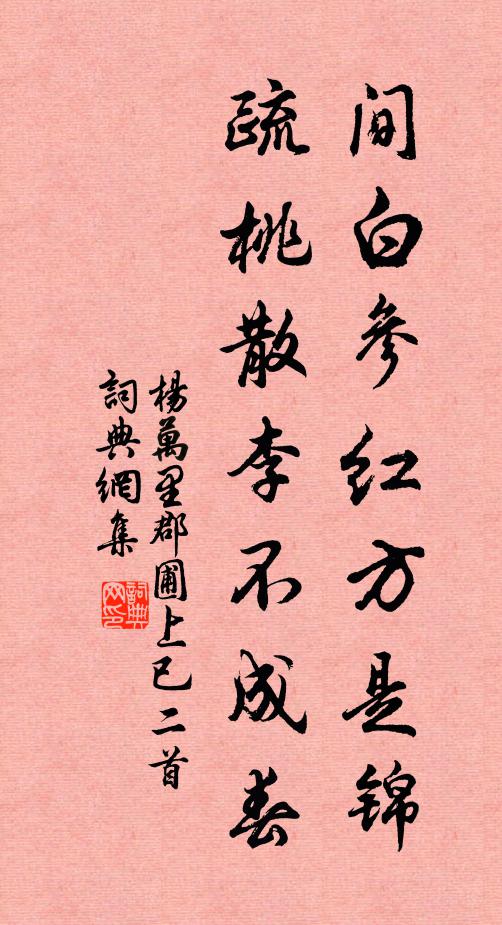 间白参红方是锦
疏桃散李不成春
楊萬里郡圃上巳二首
詞典網集
詞典網印